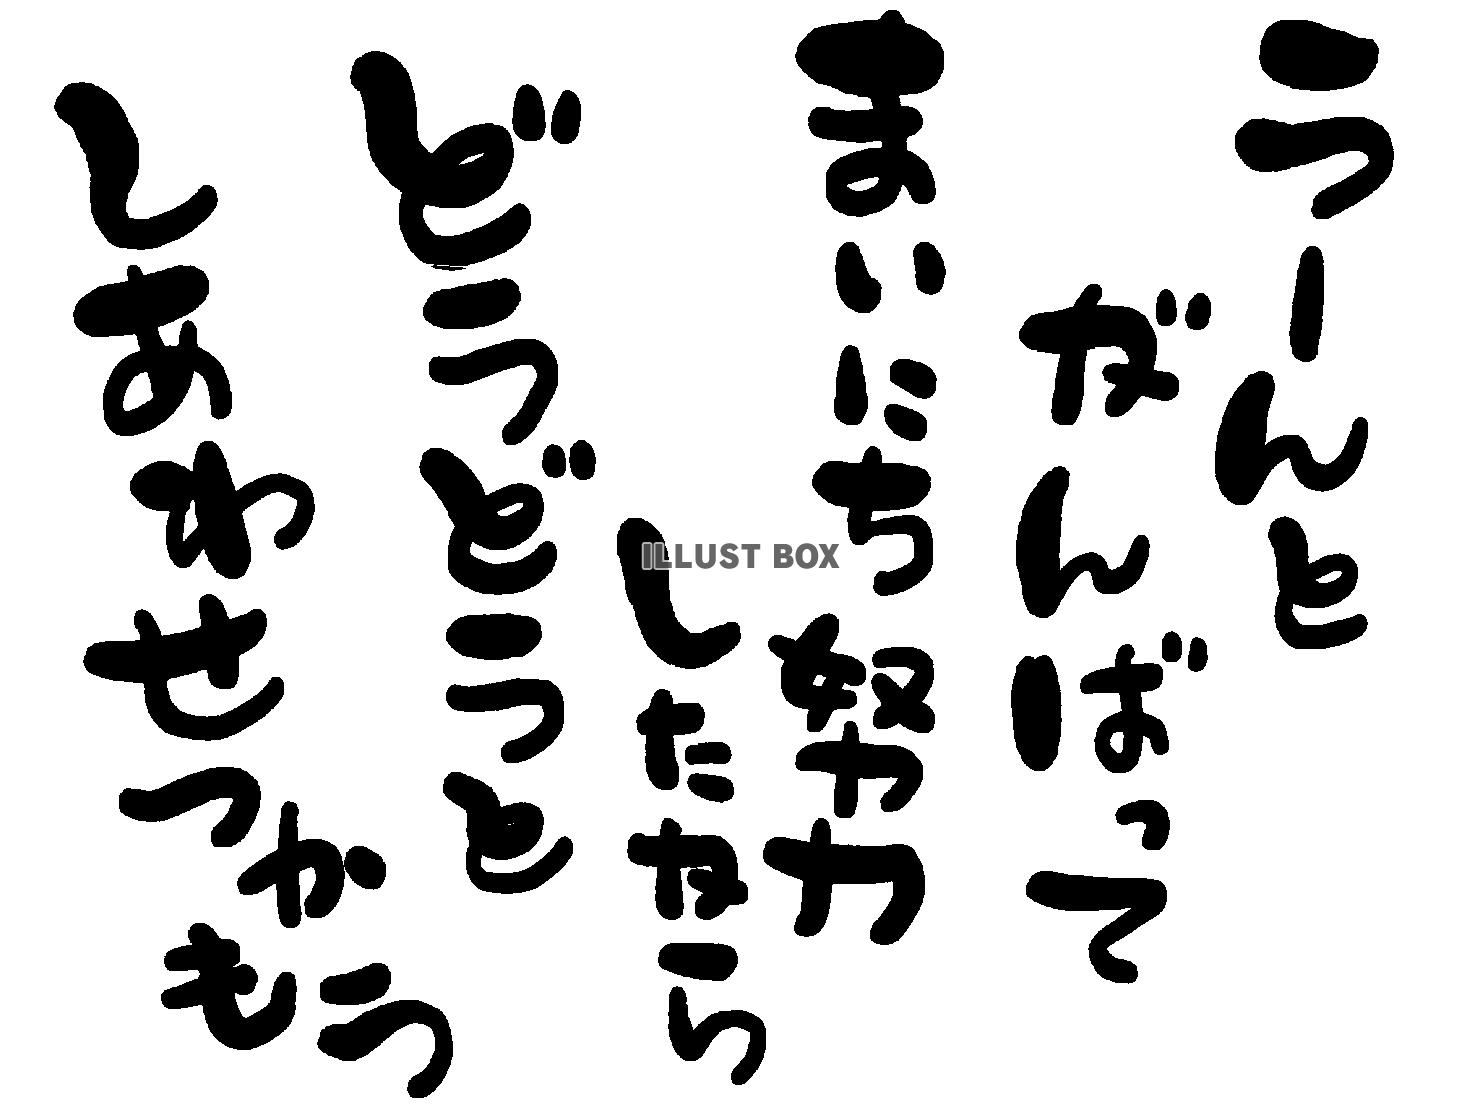 うーんと
がんばって
まいにち努力
したなら
どうどうと
しあわせつかもう
ILLUST BOX